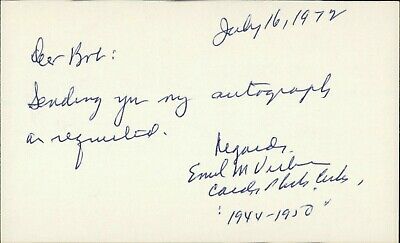 July 16, 1972
Dear Bob:
Sending you my autograph
as requested.
Regards.
Emil M Verban
Cards, Phils, Cubs,
"1944-1950"